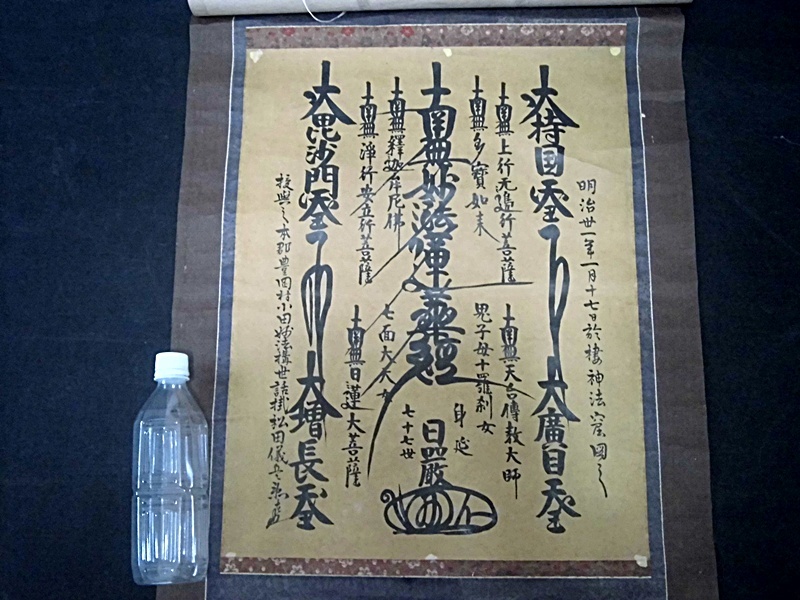 明治廿一年一月十七日於棲神法窟図之
大持国天王
大廣目天王
南無上行无邊行菩薩
南無多寶如来
南無天台傳教大師
鬼子母十羅刹女
南無妙法蓮華経
身延
七十七世
日厳
南無釋迦牟尼佛
南無淨行安立行菩薩
七面大天女
南無日蓮大菩薩
大毘沙門天王
大増長天王
授与之 本郡豊田村小田